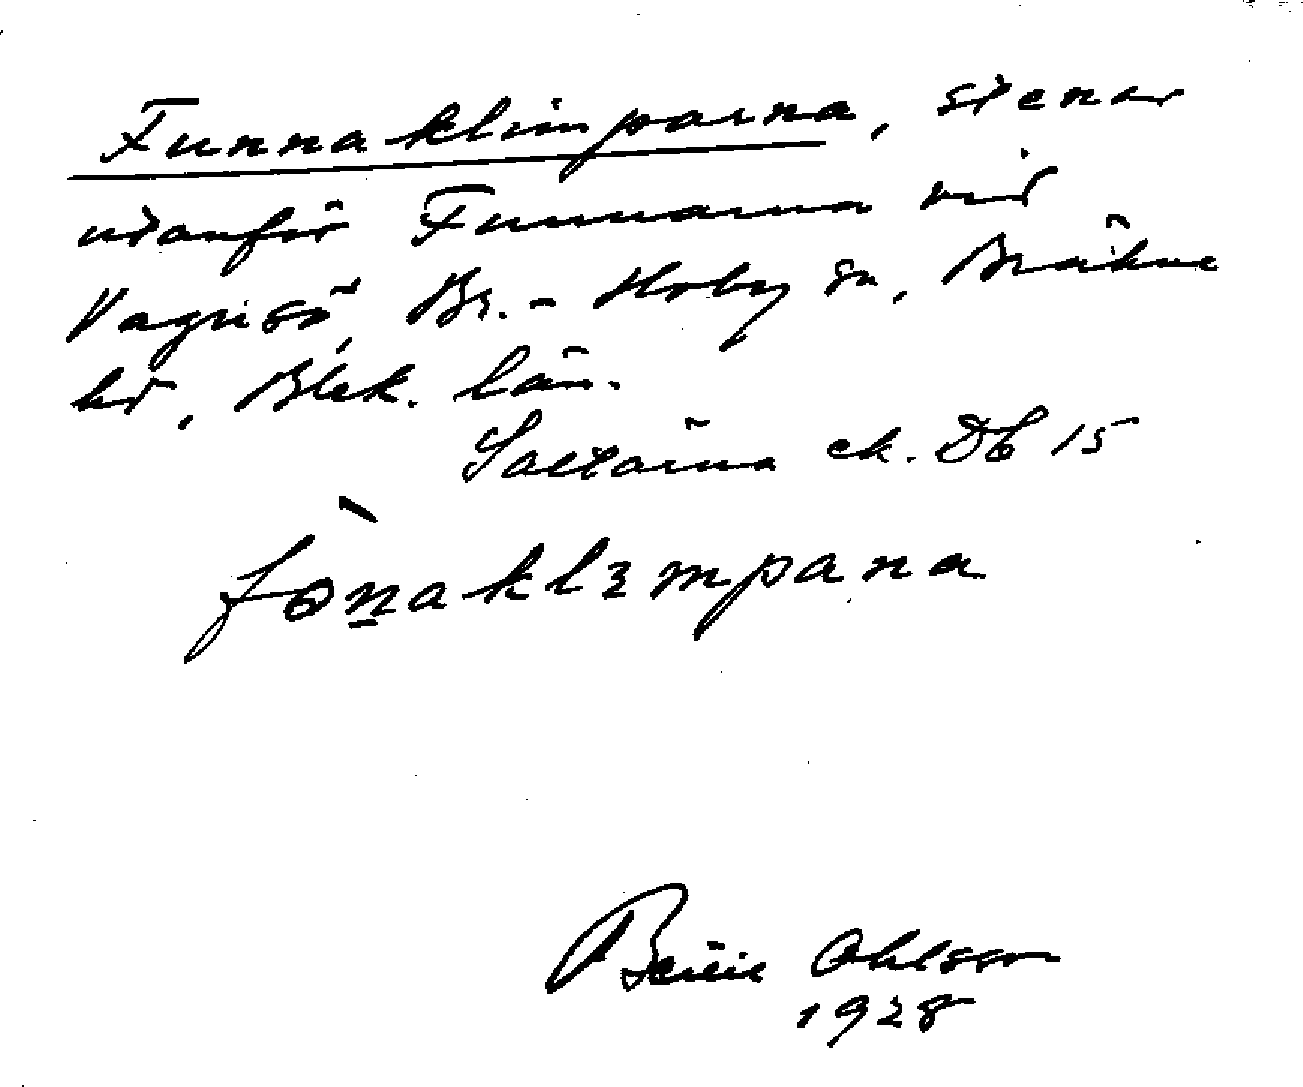 Funnaklimparna, stenar
utanför Funnarna vid
Vagnsö, Br.-Hoby sn, Bräkne
hd, Blek. län.
Saltärna ek. Db 15
fònaklɜmpana
Ohlsson
1928